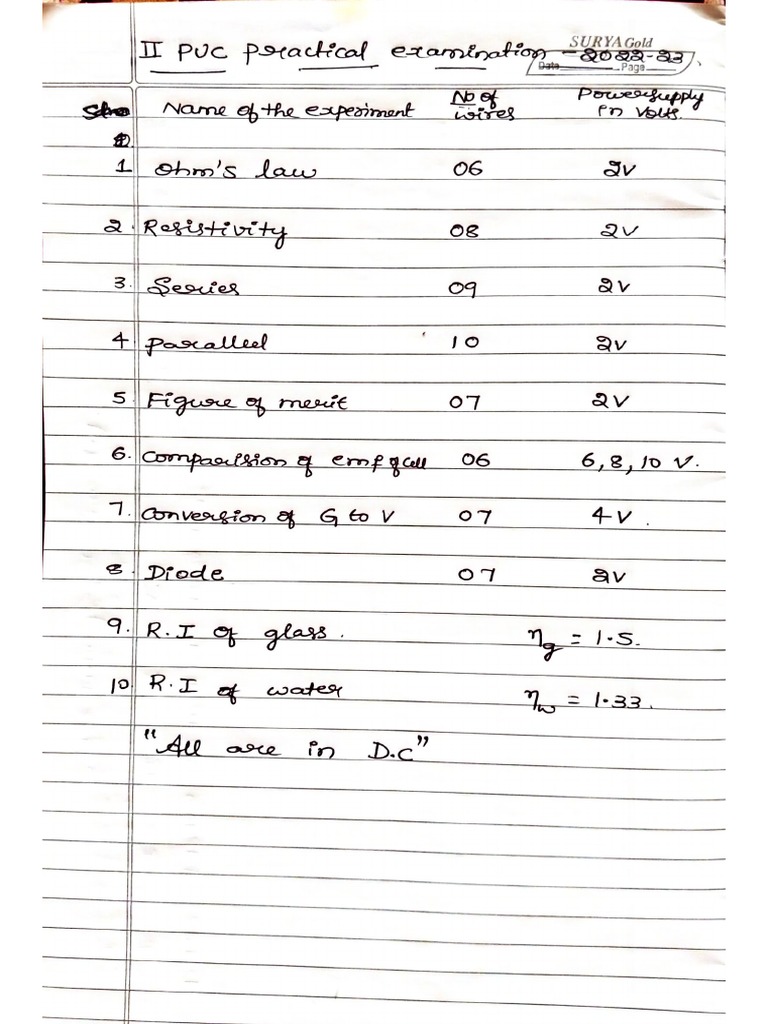 SURYA Gold
II PUC practical examination - 2022-23.
Date Page
Slno Name of the experiment No of wires Powersupply in volts.
1 Ohm's law 06 2V
2. Resistivity 08 2V
3. Series 09 2V
4 parallel 10 2V
5 Figure of merit 07 2V
6. Comparision of emf of cell 06 6, 8, 10 V.
7. Conversion of G to V 07 4V.
8. Diode 07 2V
9. R.I of glass. ηg = 1.5.
10 R.I of water ηw = 1.33.
"All are in D.C"